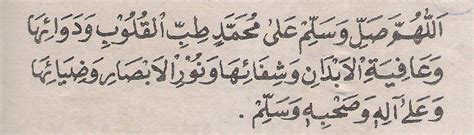 اَللّٰهُمَّ صَلِّ وَسَلِّمْ عَلٰى مُحَمَّدٍ طِبِّ الْقُلُوْبِ وَدَوَائِهَا
وَعَافِيَةِ الْاَبْدَانِ وَشِفَائِهَا وَنُوْرِ الْاَبْصَارِ وَضِيَائِهَا
وَعَلٰى اٰلِهٖ وَصَحْبِهٖ وَسَلِّمْ .